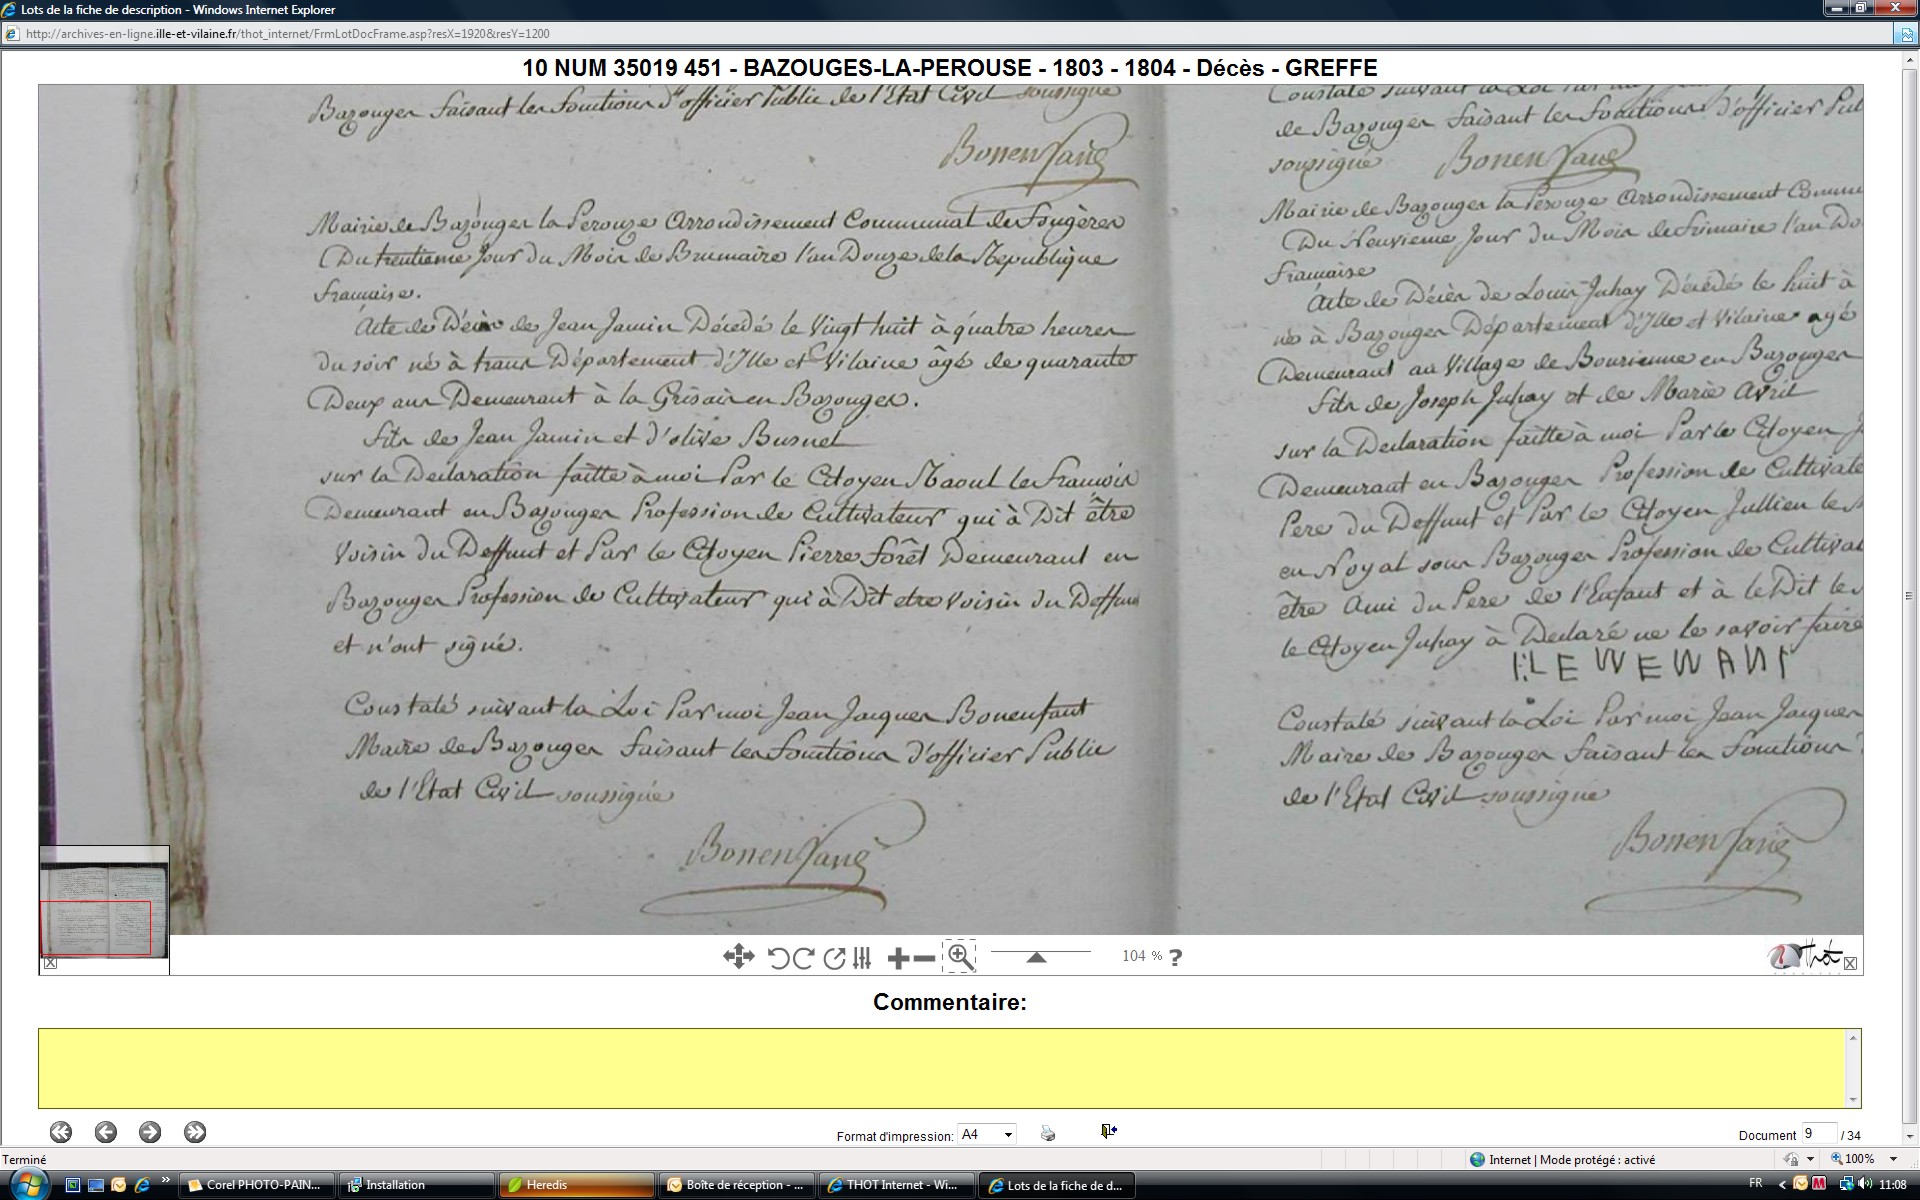 Lots de la fiche de description - Windows Internet Explorer
http://archives-en-ligne.ille-et-vilaine.fr/thot_internet/FrmLotDocFrame.asp?resX=1920&resY=1200
10 NUM 35019 451 - BAZOUGES-LA-PEROUSE - 1803 - 1804 - Décès - GREFFE
Bazouges faisant les fonctions d'officier Public de l'Etat Civil soussigné
Bonenfant
Mairie de Bazouges la Perouze Arrondissement Communal de Fougères
Du trentieme Jour du Mois de Brumaire l'an Douze de la Republique
francaise.
Acte de Décès de Jean Jamin Décédé le Vingt huit à quatre heures
du soir né à trans Département d'Ille et Vilaine âgé de quarante
Deux ans Demeurant à la Grisais en Bazouges.
fils de Jean Jamin et d'olive Busnel
sur la Declaration faitte à moi Par le Citoyen Raoul le François
Demeurant en Bazouges Profession de Cultivateur qui à Dit être
Voisin du Deffunt et Par le Citoyen Pierre forêt Demeurant en
Bazouges Profession de Cultivateur qui à Dit etre Voisin du Deffunt
et n'ont signé.
Constaté suivant la Loi Par moi Jean Jacques Bonenfant
Maire de Bazouges faisant les fonctions d'officier Public
de l'Etat Civil soussigné
Bonenfant
Constaté suivant la Loi Par moi
de Bazouges faisant les fonctions d'officier Pub
soussigné Bonenfant
Mairie de Bazouges la Perouze Arrondissement Commu
Du Neuvieme Jour du Mois de frimaire l'an Do
francaise
Acte de Décès de Louis Juhay Décédé le huit à
né à Bazouges Département d'Ille et Vilaine agé
Demeurant au Village de Bourienne en Bazouges
fils de Joseph Juhay et de Marie Avril
sur la Declaration faitte à moi Par le Citoyen J
Demeurant en Bazouges Profession de Cultivate
Pere du Deffunt et Par le Citoyen Jullien le
en Noyal sous Bazouges Profession de Cultivat
être Ami du Pere de l'Enfant et à le Dit le
le Citoyen Juhay à Declaré ne le savoir faire
Constaté suivant la Loi Par moi Jean Jacques
Maire de Bazouges faisant les fonctions
de l'Etat Civil soussigné
Bonenfant
104 % ?
Thot
Commentaire:
Format d'impression: A4
Document 9 / 34
Terminé
Internet | Mode protégé : activé
100%
Corel PHOTO-PAIN...
Installation
Heredis
Boîte de réception - ...
THOT Internet - Wi...
Lots de la fiche de d...
FR
11:08